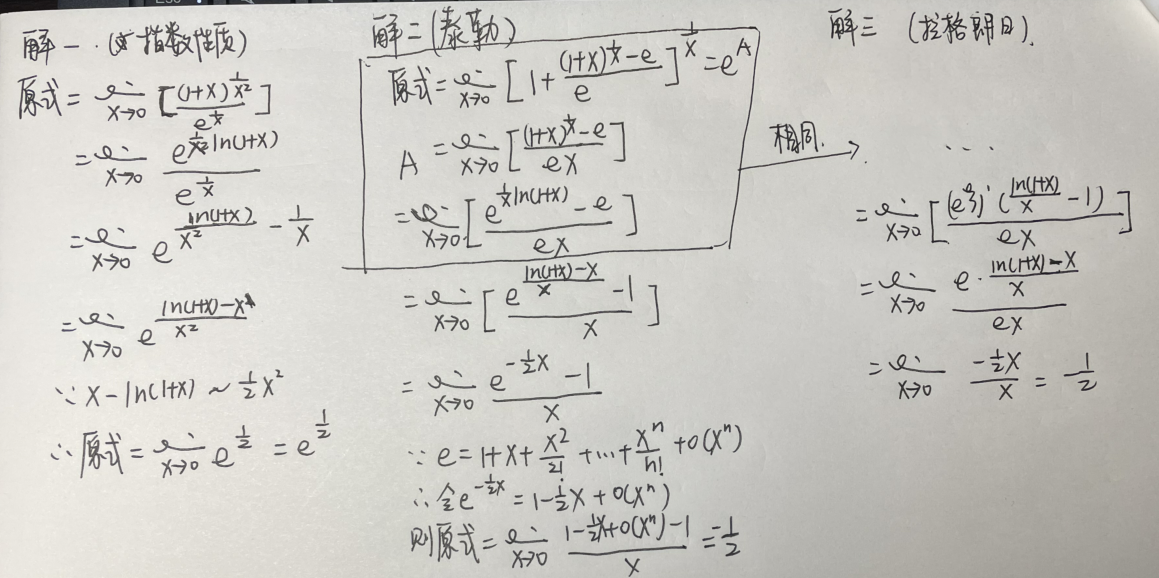 解一.(指数性质)
原式= lim x→0 [(1+x)^(1/x²) / e^(1/x)]
= lim x→0 e^(1/x² ln(1+x)) / e^(1/x)
= lim x→0 e^(ln(1+x)/x² - 1/x)
= lim x→0 e^((ln(1+x)-x)/x²)
∵ x-ln(1+x) ~ 1/2 x²
∴ 原式= lim x→0 e^(1/2) = e^(1/2)
解二(泰勒)
原式= lim x→0 [1+ ((1+x)^(1/x)-e)/e]^(1/x) = e^A
A = lim x→0 [((1+x)^(1/x)-e)/(ex)]
= lim x→0 [(e^(1/x ln(1+x)) - e)/(ex)]
= lim x→0 [(e^((ln(1+x)-x)/x) - 1)/x]
= lim x→0 (e^(-1/2 x) - 1)/x
∵ e = 1+x+x²/2!+...+xⁿ/n!+o(xⁿ)
∴ 全e^(-1/2 x) = 1-1/2 x+o(xⁿ)
则原式= lim x→0 (1-1/2 x+o(xⁿ)-1)/x = -1/2
相同.
解三 (拉格朗日).
...
= lim x→0 [(e^ξ)' (ln(1+x)/x -1)/(ex)]
= lim x→0 (e·(ln(1+x)-x)/x)/(ex)
= lim x→0 (-1/2 x)/x = -1/2